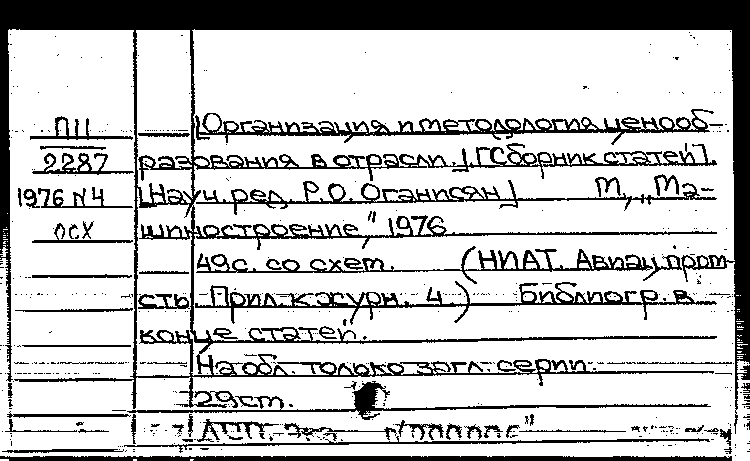 П11
2287
1976 N4
осх
[Организация и методология ценооб-
разования в отрасли.]. [Сборник статей].
[Науч. ред. Р.О. Оганисян] М, „Ма-
шиностроение," 1976.
49с. со схет. (НИАТ. Авиац. пром-
сть. Прил. к журн. 4.) Библиогр. в
конце статей.
На обл. только загл. серии.
29ст.